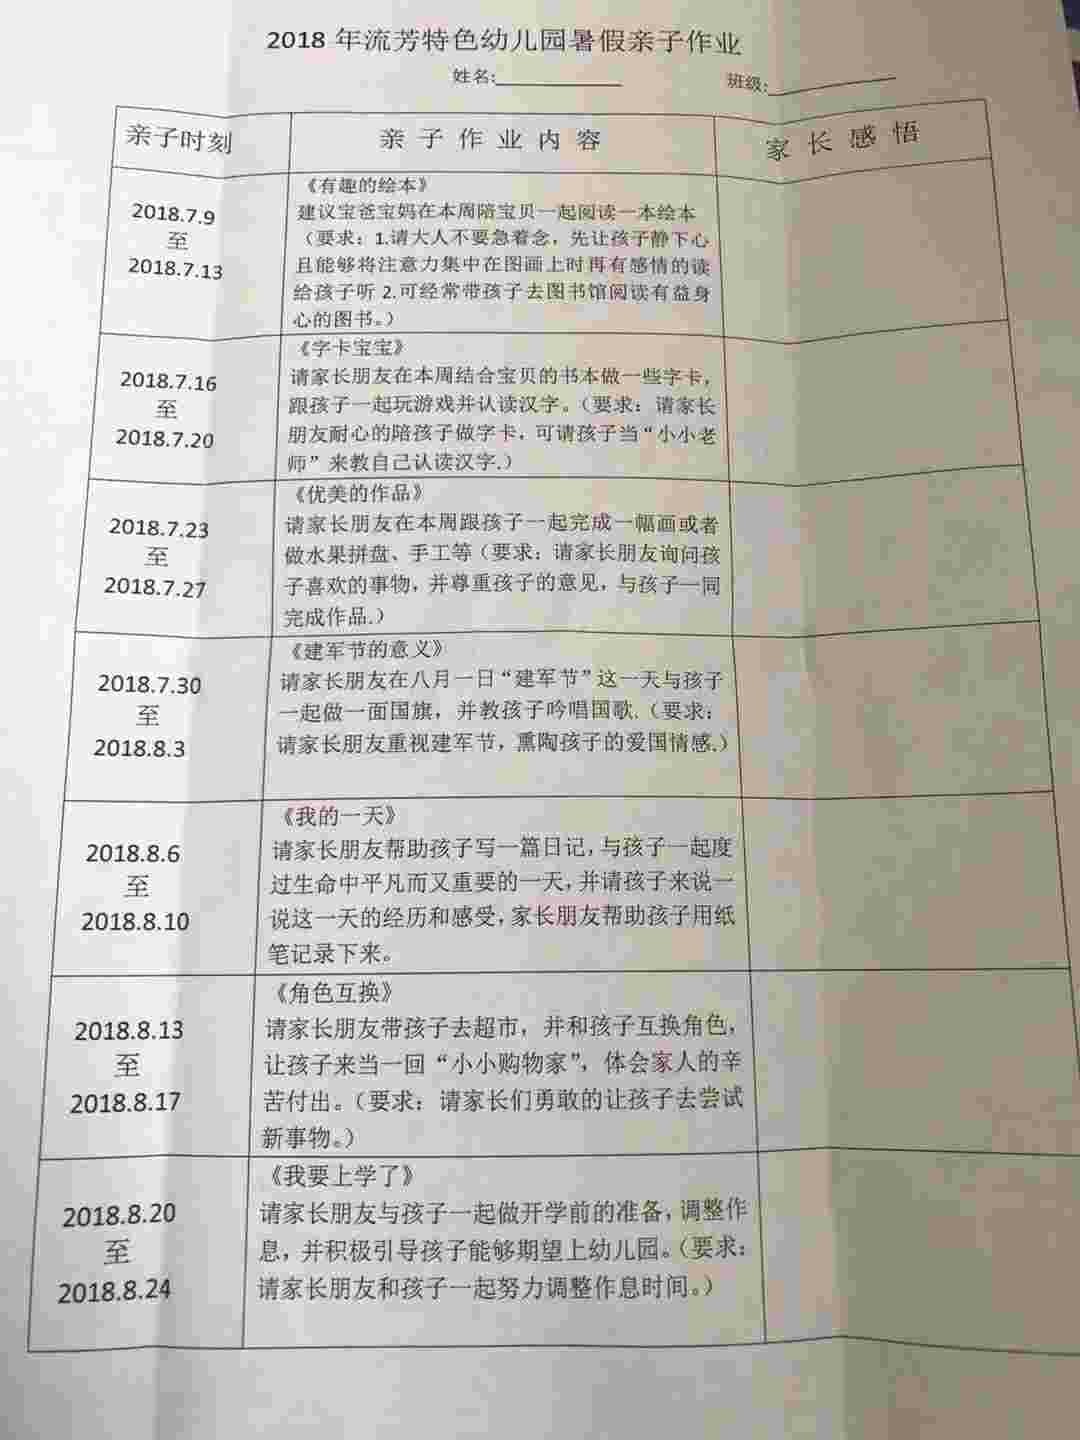 2018 年流芳特色幼儿园暑假亲子作业
姓名:
班级:
亲子时刻
亲子作业内容
家长感悟
2018.7.9
至
2018.7.13
《有趣的绘本》
建议宝爸宝妈在本周陪宝贝一起阅读一本绘本
（要求：1.请大人不要急着念，先让孩子静下心
且能够将注意力集中在图画上时再有感情的读
给孩子听 2.可经常带孩子去图书馆阅读有益身
心的图书。）
2018.7.16
至
2018.7.20
《字卡宝宝》
请家长朋友在本周结合宝贝的书本做一些字卡，
跟孩子一起玩游戏并认读汉字。（要求：请家长
朋友耐心的陪孩子做字卡，可请孩子当“小小老
师”来教自己认读汉字.）
2018.7.23
至
2018.7.27
《优美的作品》
请家长朋友在本周跟孩子一起完成一幅画或者
做水果拼盘、手工等（要求：请家长朋友询问孩
子喜欢的事物，并尊重孩子的意见，与孩子一同
完成作品.）
2018.7.30
至
2018.8.3
《建军节的意义》
请家长朋友在八月一日“建军节”这一天与孩子
一起做一面国旗，并教孩子吟唱国歌.（要求：
请家长朋友重视建军节，熏陶孩子的爱国情感.）
2018.8.6
至
2018.8.10
《我的一天》
请家长朋友帮助孩子写一篇日记，与孩子一起度
过生命中平凡而又重要的一天，并请孩子来说一
说这一天的经历和感受，家长朋友帮助孩子用纸
笔记录下来。
2018.8.13
至
2018.8.17
《角色互换》
请家长朋友带孩子去超市，并和孩子互换角色，
让孩子来当一回“小小购物家”，体会家人的辛
苦付出。（要求：请家长们勇敢的让孩子去尝试
新事物。）
2018.8.20
至
2018.8.24
《我要上学了》
请家长朋友与孩子一起做开学前的准备，调整作
息，并积极引导孩子能够期望上幼儿园。（要求：
请家长朋友和孩子一起努力调整作息时间。）